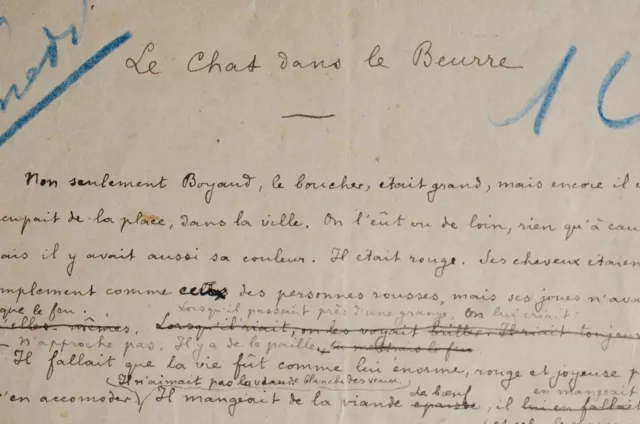 Le Chat dans le Beurre
Non seulement Boyaud, le boucher, était grand, mais encore il
cupait de la place, dans la ville. On l'eût vu de loin, rien qu'à cau
ais il y avait aussi sa couleur. Il était rouge. Ses cheveux étaien
mplement comme ceux des personnes rousses, mais ses joues n'ava
que le feu. Lorsqu'il passait près d'une grange, on lui criait :
elles-mêmes. Lorsqu'il riait, on les voyait briller. Il riait toujours
n'approche pas. Il y a de la paille,
Il fallait que la vie fût comme lui énorme, rouge et joyeuse p
Il n'aimait pas la viande blanche des veaux.
s'en accomoder. Il mangeait de la viande épaisse, il lui en fallait
de bœuf en mangeait